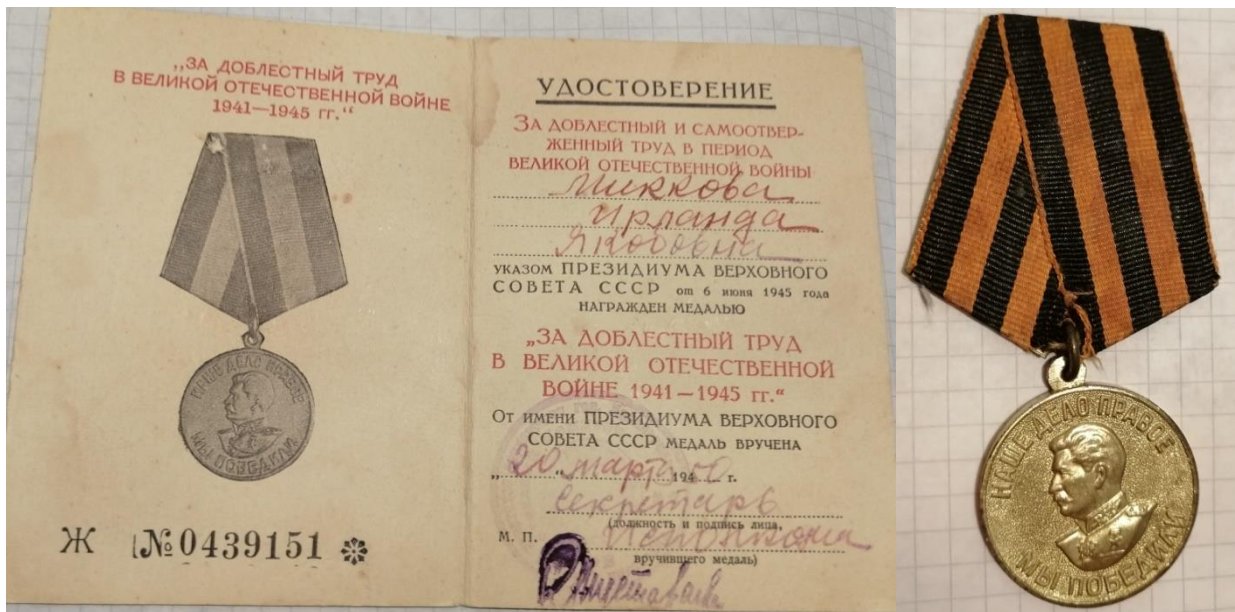 „ЗА ДОБЛЕСТНЫЙ ТРУД
В ВЕЛИКОЙ ОТЕЧЕСТВЕННОЙ ВОЙНЕ
1941—1945 гг.“
НАШЕ ДЕЛО ПРАВОЕ
МЫ ПОБЕДИЛИ
Ж №0439151
УДОСТОВЕРЕНИЕ
ЗА ДОБЛЕСТНЫЙ И САМООТВЕР-
ЖЕННЫЙ ТРУД В ПЕРИОД
ВЕЛИКОЙ ОТЕЧЕСТВЕННОЙ ВОЙНЫ
Миккова
Ирланда
Якобовна
УКАЗОМ ПРЕЗИДИУМА ВЕРХОВНОГО
СОВЕТА СССР от 6 июня 1945 года
НАГРАЖДЕН МЕДАЛЬЮ
„ЗА ДОБЛЕСТНЫЙ ТРУД
В ВЕЛИКОЙ ОТЕЧЕСТВЕННОЙ
ВОЙНЕ 1941—1945 гг.“
От имени ПРЕЗИДИУМА ВЕРХОВНОГО
СОВЕТА СССР МЕДАЛЬ ВРУЧЕНА
„20“ март 194 г.
Секретарь
(должность и подпись лица,
М. П.
вручившего медаль)
НАШЕ ДЕЛО ПРАВОЕ
МЫ ПОБЕДИЛИ